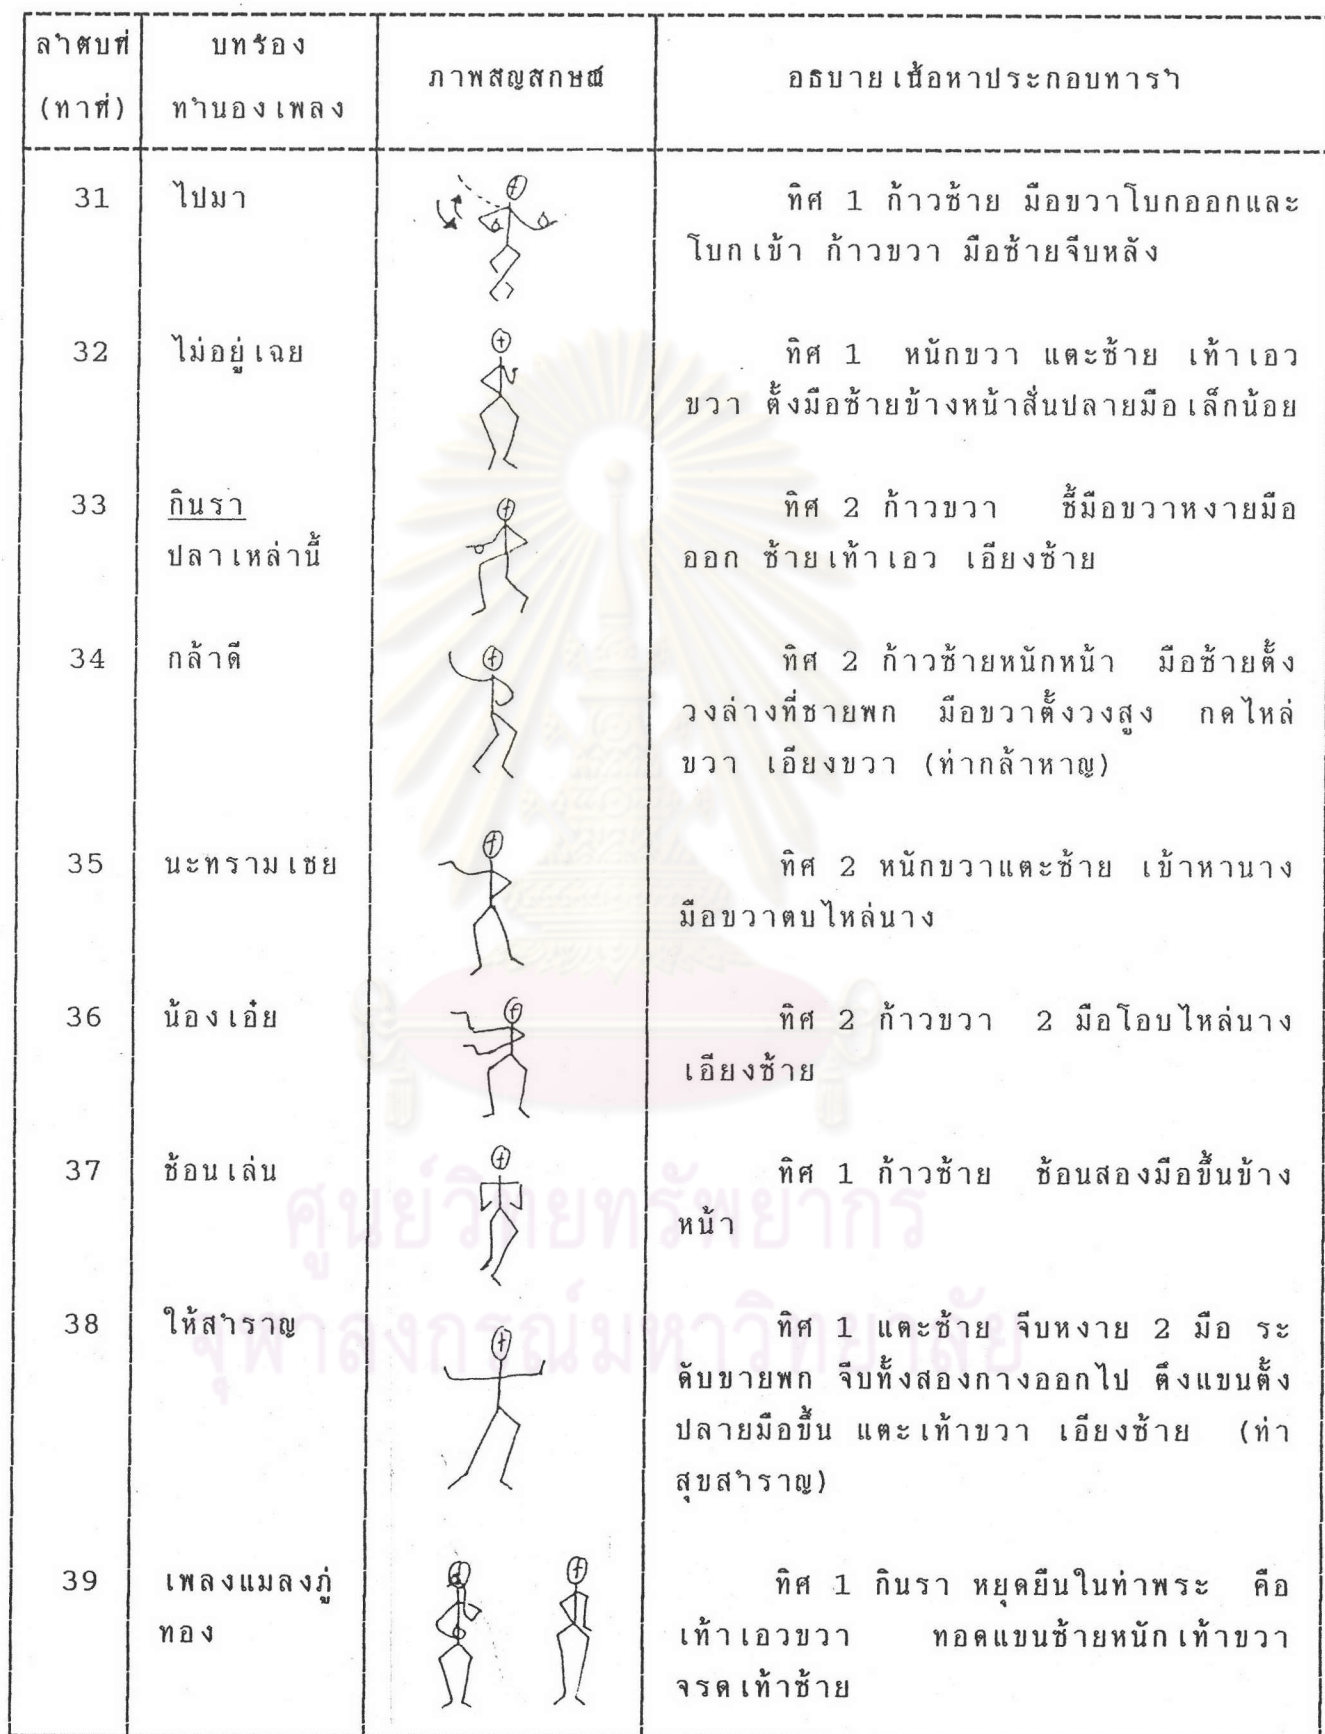 ลำดับที่ บทร้อง ภาพสัญลักษณ์ อธิบายเนื้อหาประกอบท่ารำ
(ท่าที่) ทำนองเพลง
31 ไปมา ทิศ 1 ก้าวซ้าย มือขวาโบกออกและ
โบกเข้า ก้าวขวา มือซ้ายจีบหลัง
32 ไม่อยู่เฉย ทิศ 1 หนักขวา แตะซ้าย เท้าเอว
ขวา ตั้งมือซ้ายข้างหน้าสั่นปลายมือเล็กน้อย
33 กินรา ทิศ 2 ก้าวขวา ชี้มือขวาหงายมือ
ปลาเหล่านี้ ออก ซ้ายเท้าเอว เอียงซ้าย
34 กล้าดี ทิศ 2 ก้าวซ้ายหนักหน้า มือซ้ายตั้ง
วงล่างที่ชายพก มือขวาตั้งวงสูง กดไหล่
ขวา เอียงขวา (ท่ากล้าหาญ)
35 นะทรามเชย ทิศ 2 หนักขวาแตะซ้าย เข้าหานาง
มือขวาตบไหล่นาง
36 น้องเอ๋ย ทิศ 2 ก้าวขวา 2 มือโอบไหล่นาง
เอียงซ้าย
37 ช้อนเล่น ทิศ 1 ก้าวซ้าย ช้อนสองมือขึ้นข้าง
หน้า
38 ให้สำราญ ทิศ 1 แตะซ้าย จีบหงาย 2 มือ ระ
ดับขายพก จีบทั้งสองกางออกไป ตึงแขนตั้ง
ปลายมือขึ้น แตะเท้าขวา เอียงซ้าย (ท่า
สุขสำราญ)
39 เพลงแมลงภู่ ทิศ 1 กินรา หยุดยืนในท่าพระ คือ
ทอง เท้าเอวขวา ทอดแขนซ้ายหนักเท้าขวา
จรดเท้าซ้าย
ศูนย์วิทยทรัพยากร
จุฬาลงกรณ์มหาวิทยาลัย